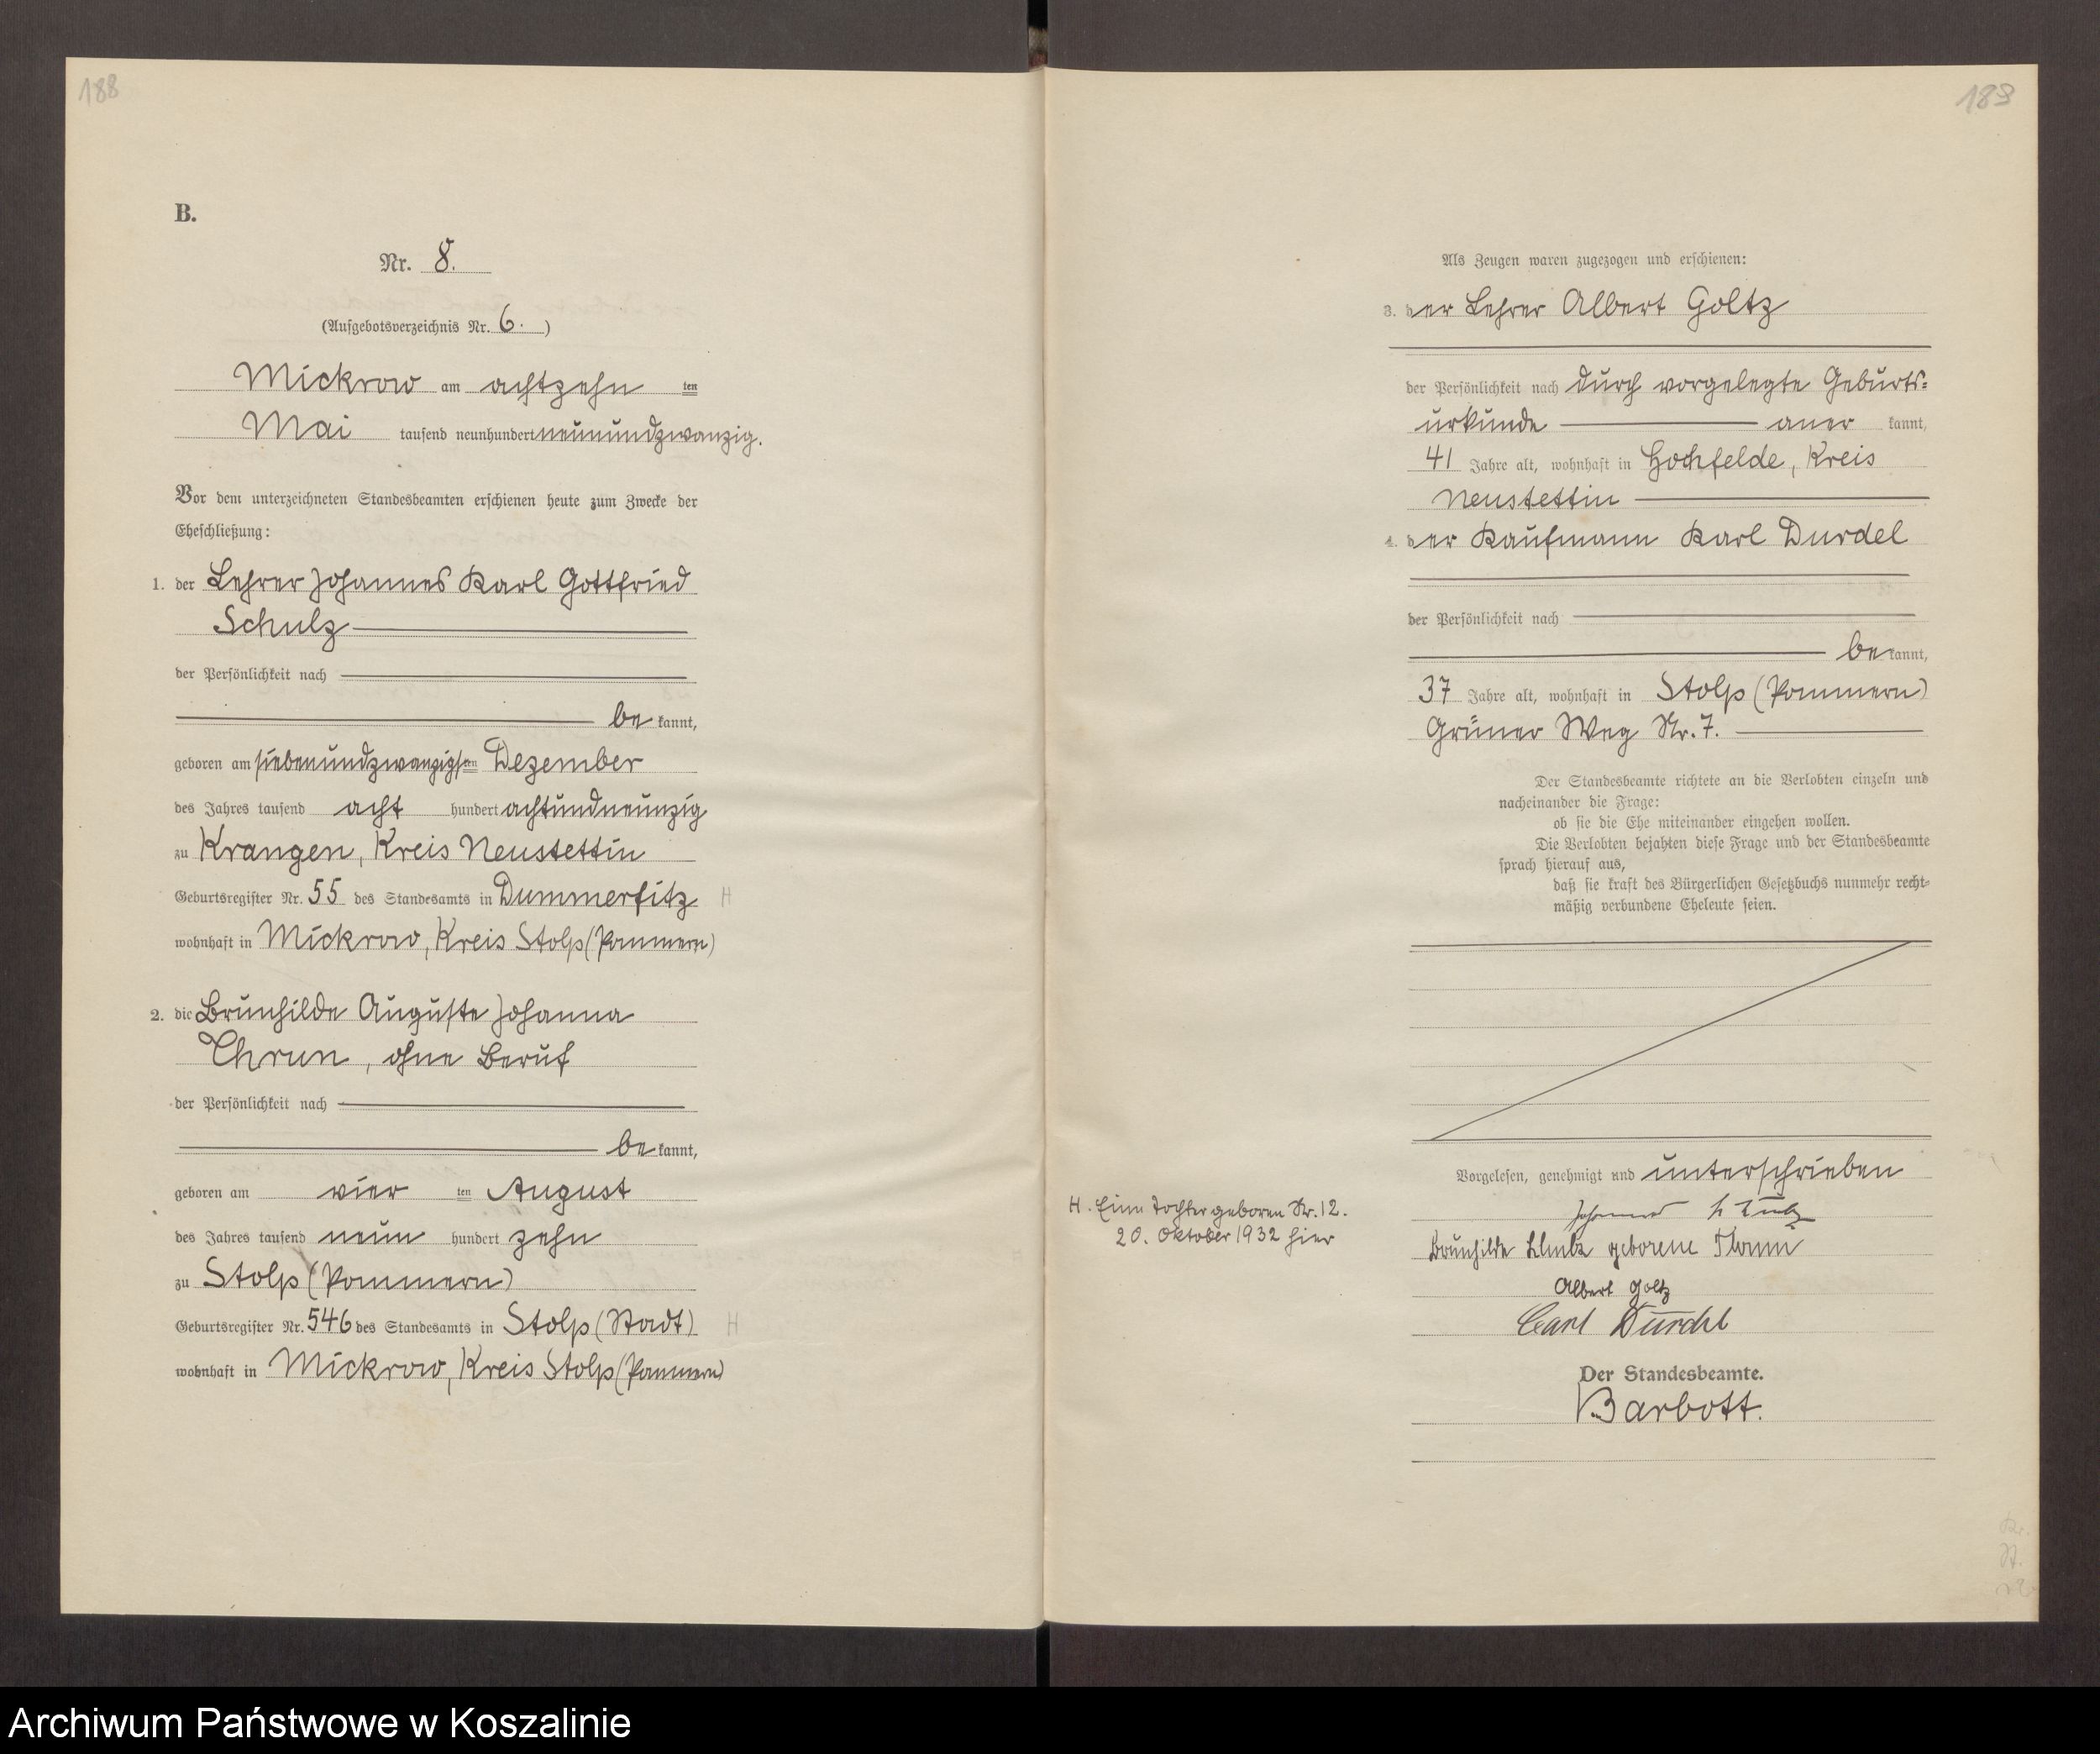 188
B.
Nr. 8.
(Aufgebotsverzeichnis Nr. 6. )
Mickrow am achtzehn ten
Mai tausend neunhundert neunundzwanzig.
Vor dem unterzeichneten Standesbeamten erschienen heute zum Zwecke der
Eheschließung:
1. der Lehrer Johannes Karl Gottfried
Schulz
der Persönlichkeit nach
be kannt,
geboren am siebenundzwanzigsten Dezember
des Jahres tausend acht hundert achtundneunzig
zu Krangen, Kreis Neustettin
Geburtsregister Nr. 55 des Standesamts in Dummerfitz H
wohnhaft in Mickrow, Kreis Stolp (Pommern)
2. die Brunhilde Auguste Johanna
Thrun, ohne Beruf
der Persönlichkeit nach
be kannt,
geboren am vier ten August
des Jahres tausend neun hundert zehn
zu Stolp (Pommern)
Geburtsregister Nr. 546 des Standesamts in Stolp (Stadt) H
wohnhaft in Mickrow, Kreis Stolp (Pommern)
189
Als Zeugen waren zugezogen und erschienen:
3. der Lehrer Albert Goltz
der Persönlichkeit nach durch vorgelegte Geburts-
urkunde aner kannt,
41 Jahre alt, wohnhaft in Hochfelde, Kreis
Neustettin
4. der Kaufmann Karl Durdel
der Persönlichkeit nach
be kannt,
37 Jahre alt, wohnhaft in Stolp (Pommern)
Grüner Weg Nr. 7.
Der Standesbeamte richtete an die Verlobten einzeln und
nacheinander die Frage:
ob sie die Ehe miteinander eingehen wollen.
Die Verlobten bejahten diese Frage und der Standesbeamte
sprach hierauf aus,
daß sie kraft des Bürgerlichen Gesetzbuchs nunmehr recht-
mäßig verbundene Eheleute seien.
Vorgelesen, genehmigt und unterschrieben
Johannes Schulz
Brunhilde Schulz geborene Thrun
Albert Goltz
Carl Durdel
Der Standesbeamte.
Barbott.
H. Eine Tochter geboren Nr. 12.
20. Oktober 1932 hier
Archiwum Państwowe w Koszalinie